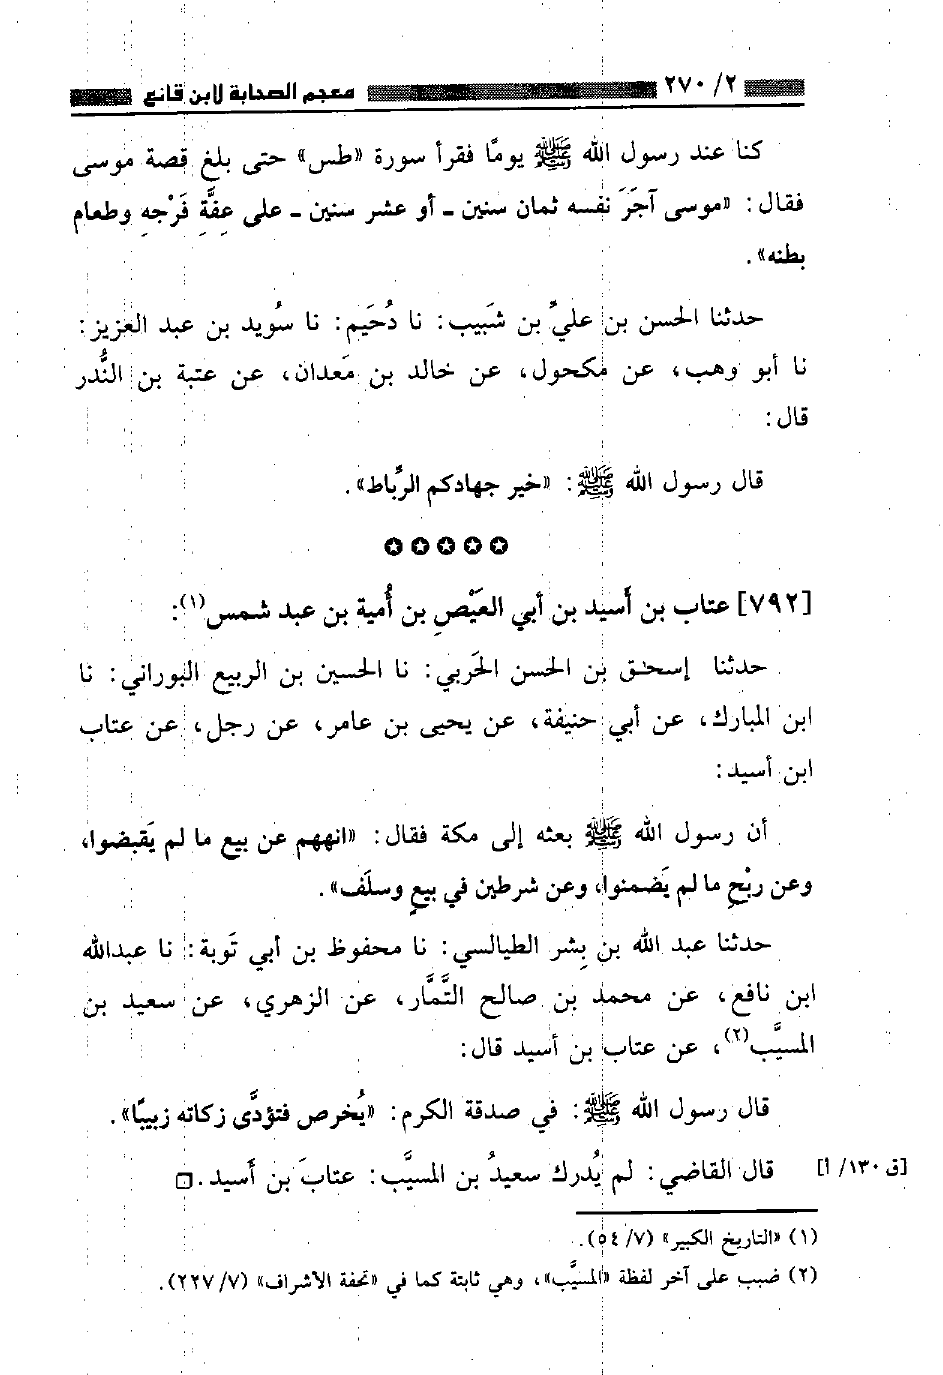 ٢/ ٢٧٠ معجم الصحابة لابن قانع
كنا عند رسول الله ﷺ يومًا فقرأ سورة «طس» حتى بلغ قصة موسى
فقال: «موسى آجَرَ نفسه ثمان سنين ـ أو عشر سنين ـ على عِفَّةِ فَرْجِهِ وطعام
بطنه».
حدثنا الحسن بن عليِّ بن شَبيب: نا دُحَيم: نا سُويد بن عبد العزيز:
نا أبو وهب، عن مكحول، عن خالد بن مَعدان، عن عتبة بن النُّدر
قال:
قال رسول الله ﷺ: «خير جهادكم الرِّباط».
✪✪✪✪✪
[٧٩٢] عتاب بن أَسيد بن أبي العَيْصِ بن أُمية بن عبد شمس(١):
حدثنا إسحٰق بن الحسن الحَربي: نا الحسين بن الربيع البوراني: نا
ابن المبارك، عن أبي حنيفة، عن يحيى بن عامر، عن رجل، عن عتاب
ابن أسيد:
أن رسول الله ﷺ بعثه إلى مكة فقال: «انههم عن بيع ما لم يَقبضوا،
وعن ربْحِ ما لم يَضمنوا، وعن شرطين في بيعٍ وسلَف».
حدثنا عبد الله بن بِشر الطيالسي: نا محفوظ بن أبي تَوبة: نا عبدالله
ابن نافع، عن محمد بن صالح التَّمَّار، عن الزهري، عن سعيد بن
المسيَّب(٢)، عن عتاب بن أسيد قال:
قال رسول الله ﷺ: في صدقة الكرم: «يُخرص فتؤدَّى زكاته زبيبًا».
[ق ١٣٠/ أ] قال القاضي: لم يُدرك سعيدُ بن المسيَّب: عتابَ بن أَسيد.
(١) «التاريخ الكبير» (٥٤/٧).
(٢) ضبب على آخر لفظة «المسيَّب»، وهي ثابتة كما في «تحفة الأشراف» (٢٢٧/٧).